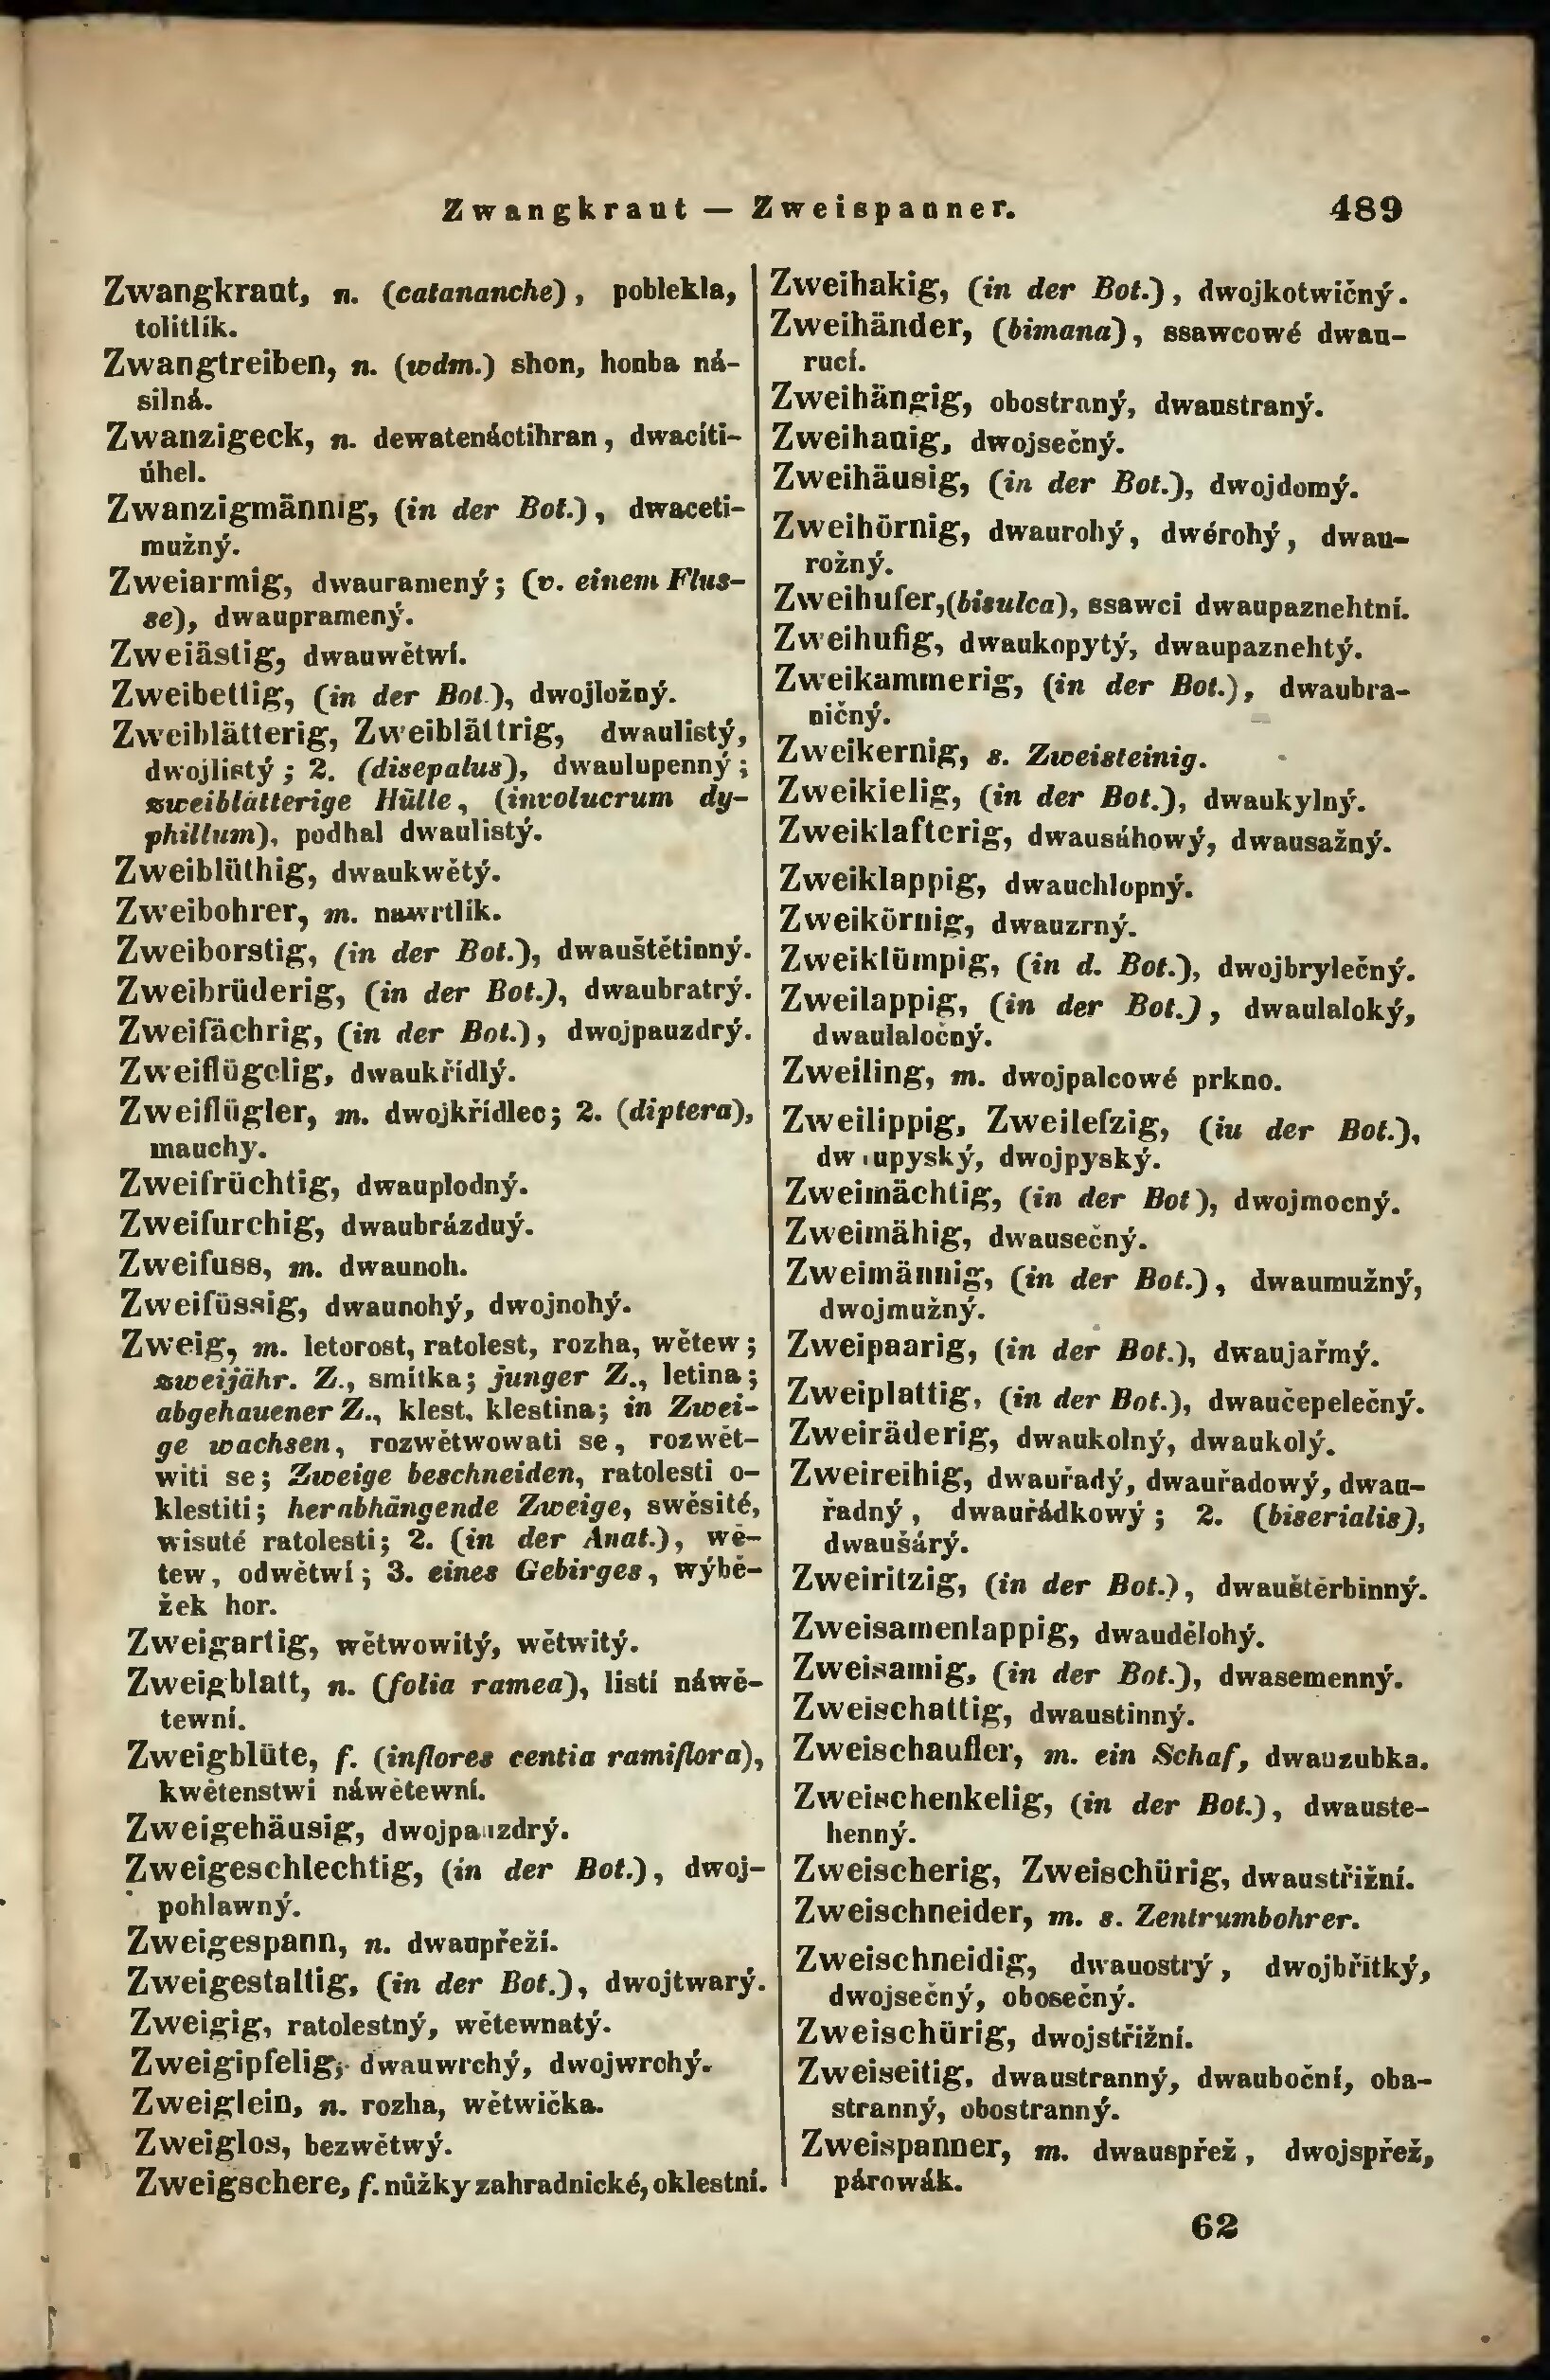 Zwangkraut — Zweispanner.
489
Zwangkraut, n. (catananche), poblekla,
tolitlík.
Zwangtreiben, n. (wdm.) shon, honba ná-
silná.
Zwanzigeck, n. dewatenáctihran, dwacíti-
úhel.
Zwanzigmännig, (in der Bot.), dwaceti-
mužný.
Zweiarmig, dwauramený; (v. einem Flus-
se), dwaupramený.
Zweiästig, dwauwětwí.
Zweibettig, (in der Bot.), dwojložný.
Zweiblätterig, Zweiblättrig, dwaulistý,
dwojlistý; 2. (disepalus), dwaulupenný;
zweiblätterige Hülle, (involucrum dy-
phillum), podhal dwaulistý.
Zweiblüthig, dwaukwětý.
Zweibohrer, m. nawrtlík.
Zweiborstig, (in der Bot.), dwauštětinný.
Zweibrüderig, (in der Bot.), dwaubratrý.
Zweifächrig, (in der Bot.), dwojpauzdrý.
Zweiflügelig, dwaukřídlý.
Zweiflügler, m. dwojkřídlec; 2. (diptera),
mauchy.
Zweifrüchtig, dwauplodný.
Zweifurchig, dwaubrázduý.
Zweifuss, m. dwaunoh.
Zweifüssig, dwaunohý, dwojnohý.
Zweig, m. letorost, ratolest, rozha, wětew;
zweijähr. Z., smitka; junger Z., letina;
abgehauener Z., klest, klestina; in Zwei-
ge wachsen, rozwětwowati se, rozwět-
witi se; Zweige beschneiden, ratolesti o-
klestiti; herabhängende Zweige, swěsité,
wisuté ratolesti; 2. (in der Anat.), wě-
tew, odwětwí; 3. eines Gebirges, wýbě-
žek hor.
Zweigartig, wětwowitý, wětwitý.
Zweigblatt, n. (folia ramea), listí náwě-
tewní.
Zweigblüte, f. (inflores centia ramiflora),
kwětenstwi náwětewní.
Zweigehäusig, dwojpauzdrý.
Zweigeschlechtig, (in der Bot.), dwoj-
pohlawný.
Zweigespann, n. dwaupřeží.
Zweigestaltig, (in der Bot.), dwojtwarý.
Zweigig, ratolestný, wětewnatý.
Zweigipfelig, dwauwrchý, dwojwrchý.
Zweiglein, n. rozha, wětwička.
Zweiglos, bezwětwý.
Zweigschere, f. nůžky zahradnické, oklestní.
Zweihakig, (in der Bot.), dwojkotwičný.
Zweihänder, (bimana), ssawcowé dwau-
rucí.
Zweihängig, obostraný, dwaustraný.
Zweihauig, dwojsečný.
Zweihäusig, (in der Bot.), dwojdomý.
Zweihörnig, dwaurohý, dwérohý, dwau-
rožný.
Zweihufer,(bisulca), ssawci dwaupaznehtní.
Zweihufig, dwaukopytý, dwaupaznehtý.
Zweikammerig, (in der Bot.), dwaubra-
ničný.
Zweikernig, s. Zweisteinig.
Zweikielig, (in der Bot.), dwaukylný.
Zweiklafterig, dwausáhowý, dwausažný.
Zweiklappig, dwauchlopný.
Zweikörnig, dwauzrný.
Zweiklümpig, (in d. Bot.), dwojbrylečný.
Zweilappig, (in der Bot.), dwaulaloký,
dwaulaločný.
Zweiling, m. dwojpalcowé prkno.
Zweilippig, Zweilefzig, (iu der Bot.),
dwaupyský, dwojpyský.
Zweimächtig, (in der Bot), dwojmocný.
Zweimähig, dwausečný.
Zweimännig, (in der Bot.), dwaumužný,
dwojmužný.
Zweipaarig, (in der Bot.), dwaujařmý.
Zweiplattig, (in der Bot.), dwaučepelečný.
Zweiräderig, dwaukolný, dwaukolý.
Zweireihig, dwauřadý, dwauřadowý, dwau-
řadný, dwauřádkowý; 2. (biserialis),
dwaušárý.
Zweiritzig, (in der Bot.), dwauštěrbinný.
Zweisamenlappig, dwaudělohý.
Zweisamig, (in der Bot.), dwasemenný.
Zweischattig, dwaustinný.
Zweischaufler, m. ein Schaf, dwauzubka.
Zweischenkelig, (in der Bot.), dwauste-
henný.
Zweischerig, Zweischürig, dwaustřižní.
Zweischneider, m. s. Zentrumbohrer.
Zweischneidig, dwauostrý, dwojbřitký,
dwojsečný, obosečný.
Zweischürig, dwojstřižní.
Zweiseitig, dwaustranný, dwauboční, oba-
stranný, obostranný.
Zweispanner, m. dwauspřež, dwojspřež,
párowák.
62